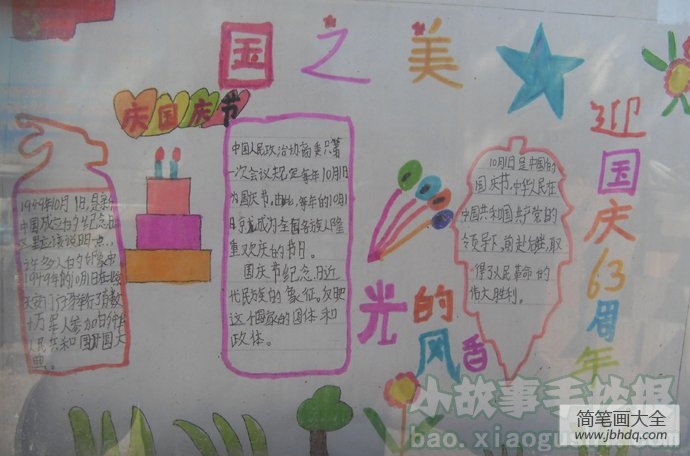 国之美
庆国庆节
迎国庆63周年
中国成立的纪念日
许多人的印象中
1949年的10月1日在北京
天安门广场举行了有数
十万军人参加的中华
人民共和国开国大
典。
中国人民政治协商委员第
一次会议规定每年10月1日
为国庆节,由此,每年的10月1
日就成为全国各族人隆
重欢庆的节日。
国庆节纪念日近
代民族的象征,反映
这个国家的国体和
政体。
10月1日是中国的
国庆节,中华人民在
中国共和国共产党的
领导下,前赴后继,取
得了人民革命的
伟大胜利。
光的风香
小故事手抄报
bao.xiaogus
简笔画大全
www.jbhdq.com